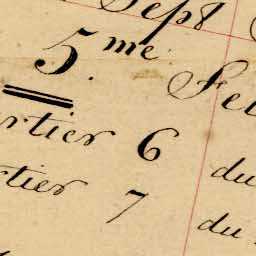 Sept
5.me Fe
rtier 6 du
rtier 7 du